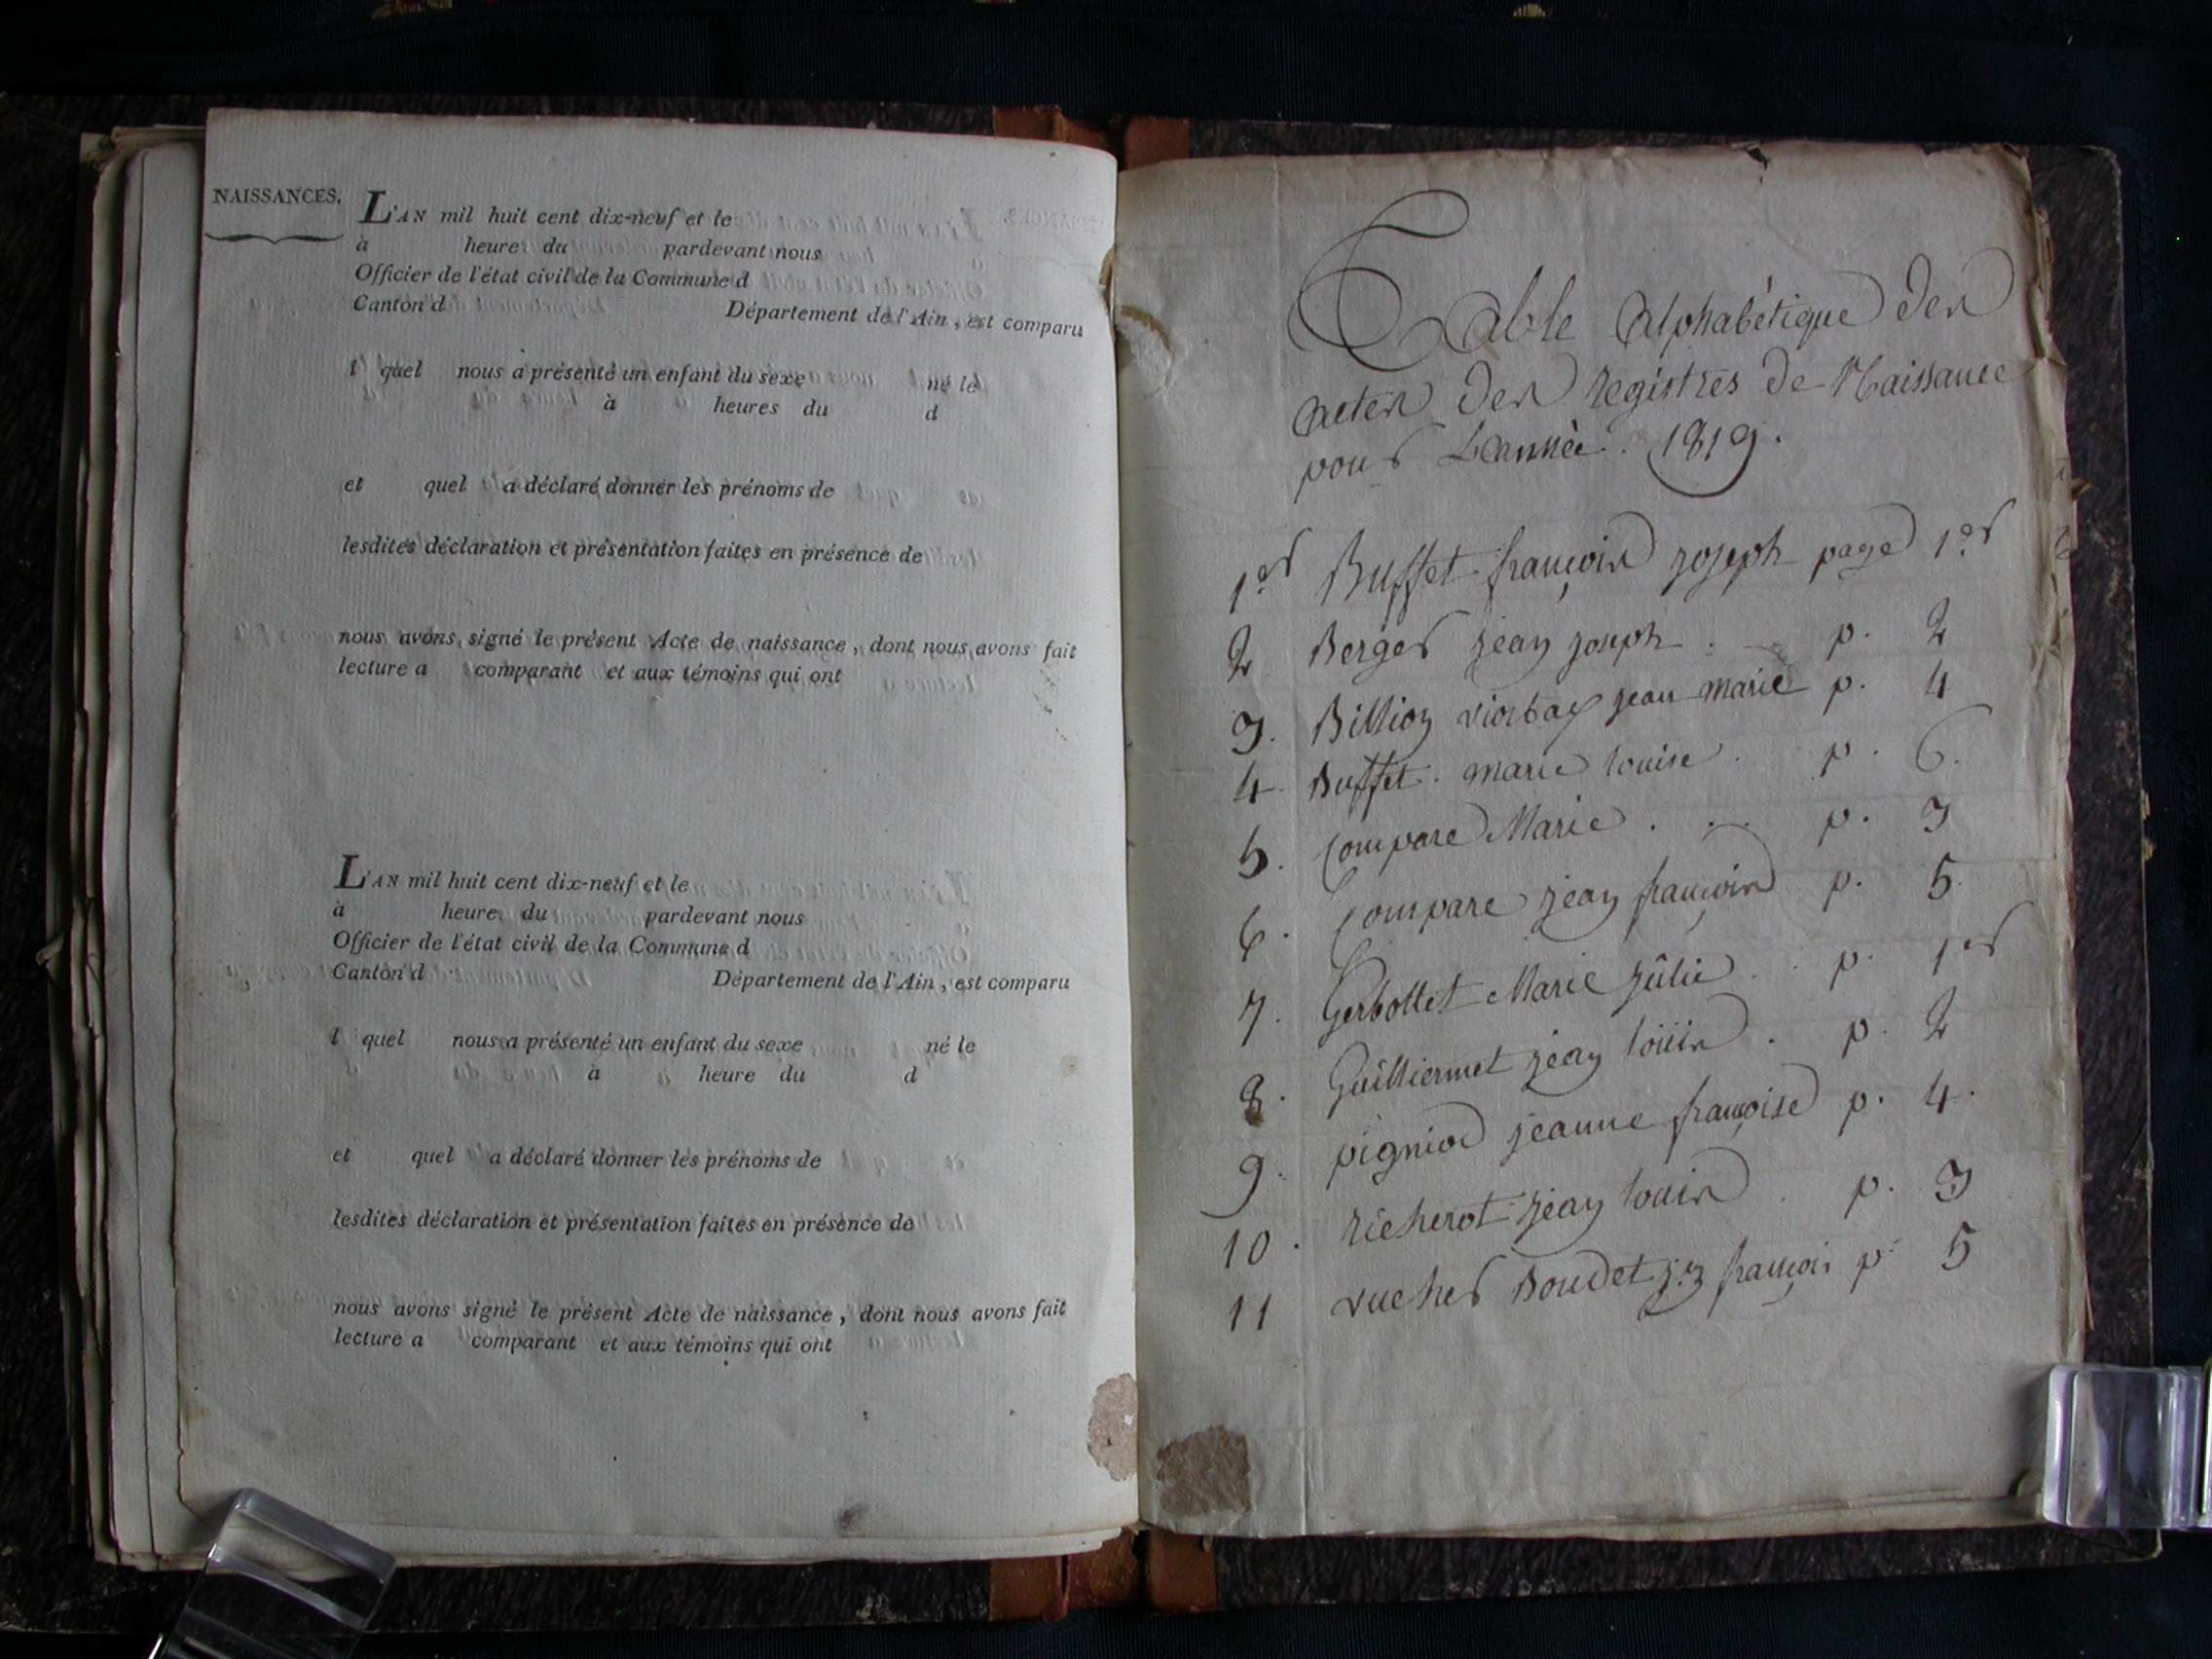 NAISSANCES.
L'AN mil huit cent dix-neuf et le
à heure du pardevant nous
Officier de l'état civil de la Commune d
Canton d Département de l'Ain, est comparu
l quel nous a présenté un enfant du sexe né le
à heures du d
et quel a déclaré donner les prénoms de
lesdites déclaration et présentation faites en présence de
nous avons signé le présent Acte de naissance, dont nous avons fait
lecture a comparant et aux témoins qui ont
L'AN mil huit cent dix-neuf et le
à heure du pardevant nous
Officier de l'état civil de la Commune d
Canton d Département de l'Ain, est comparu
l quel nous a présenté un enfant du sexe né le
à heure du d
et quel a déclaré donner les prénoms de
lesdites déclaration et présentation faites en présence de
nous avons signé le présent Acte de naissance, dont nous avons fait
lecture a comparant et aux témoins qui ont
Table Alphabétique des
actes des registres de Naissance
pour L'année. 1819.
1er Buffet françois joseph page 1er
2 Berger jean joseph . p. 2
3. Billion jean marie p. 4
4. Buffet. marie louise . p. 6.
5. Compare Marie . .. p. 3
6. Compare jean françois p. 5.
7. Gerbottet Marie jûlie . . p. 1er
8. Guilliermet jean loüis . p. 2
9. pignion jeanne françoise p. 4.
10. richerot jean louis . p. 3
11 vucher Boudet jn françois p. 5